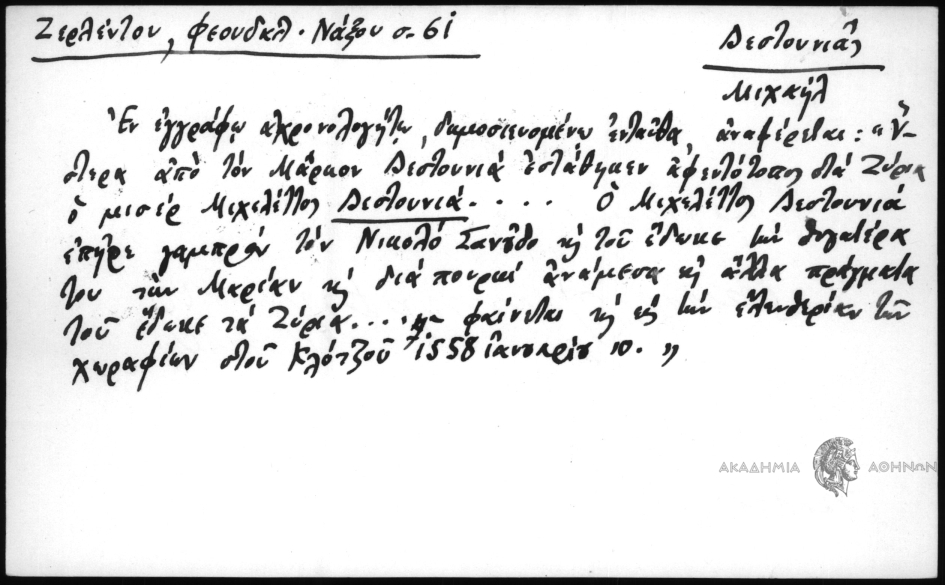 Ζερλέντου, Φεουδαλ. Νάξου σ. 61
Δεστουνιᾶς
Μιχαήλ
Ἐν ἐγγράφῳ ἀχρονολογήτῳ, δημοσιευομένῳ ἐνταῦθα, ἀναφέρεται: «Ὕ-
στερα ἀπὸ τὸν Μάρκον Δεστουνιά ἐστάθηκεν ἀφεντότοπος στὰ Ζύρια
ὁ μισέρ Μιχελέττος Δεστουνιά.... Ὁ Μιχελέττος Δεστουνιά
ἐπῆρε γαμπρὸν τὸν Νικολό Σανοῦδο κὴ τοῦ ἔδωκε τὴν θυγατέρα
του τὴν Μαρίαν κὴ διά πουρκί ἀνάμεσα κὴ ἄλλα πράγματα
τοῦ ἔδωκε τὰ Ζύρια... φαίνεται κὴ εἰς τὴν ἐλευθερίαν τῶν
χωραφίων στοῦ Κλότζου 1558 ἰανουαρίου 10.»
ΑΚΑΔΗΜΙΑ ΑΘΗΝΩΝ